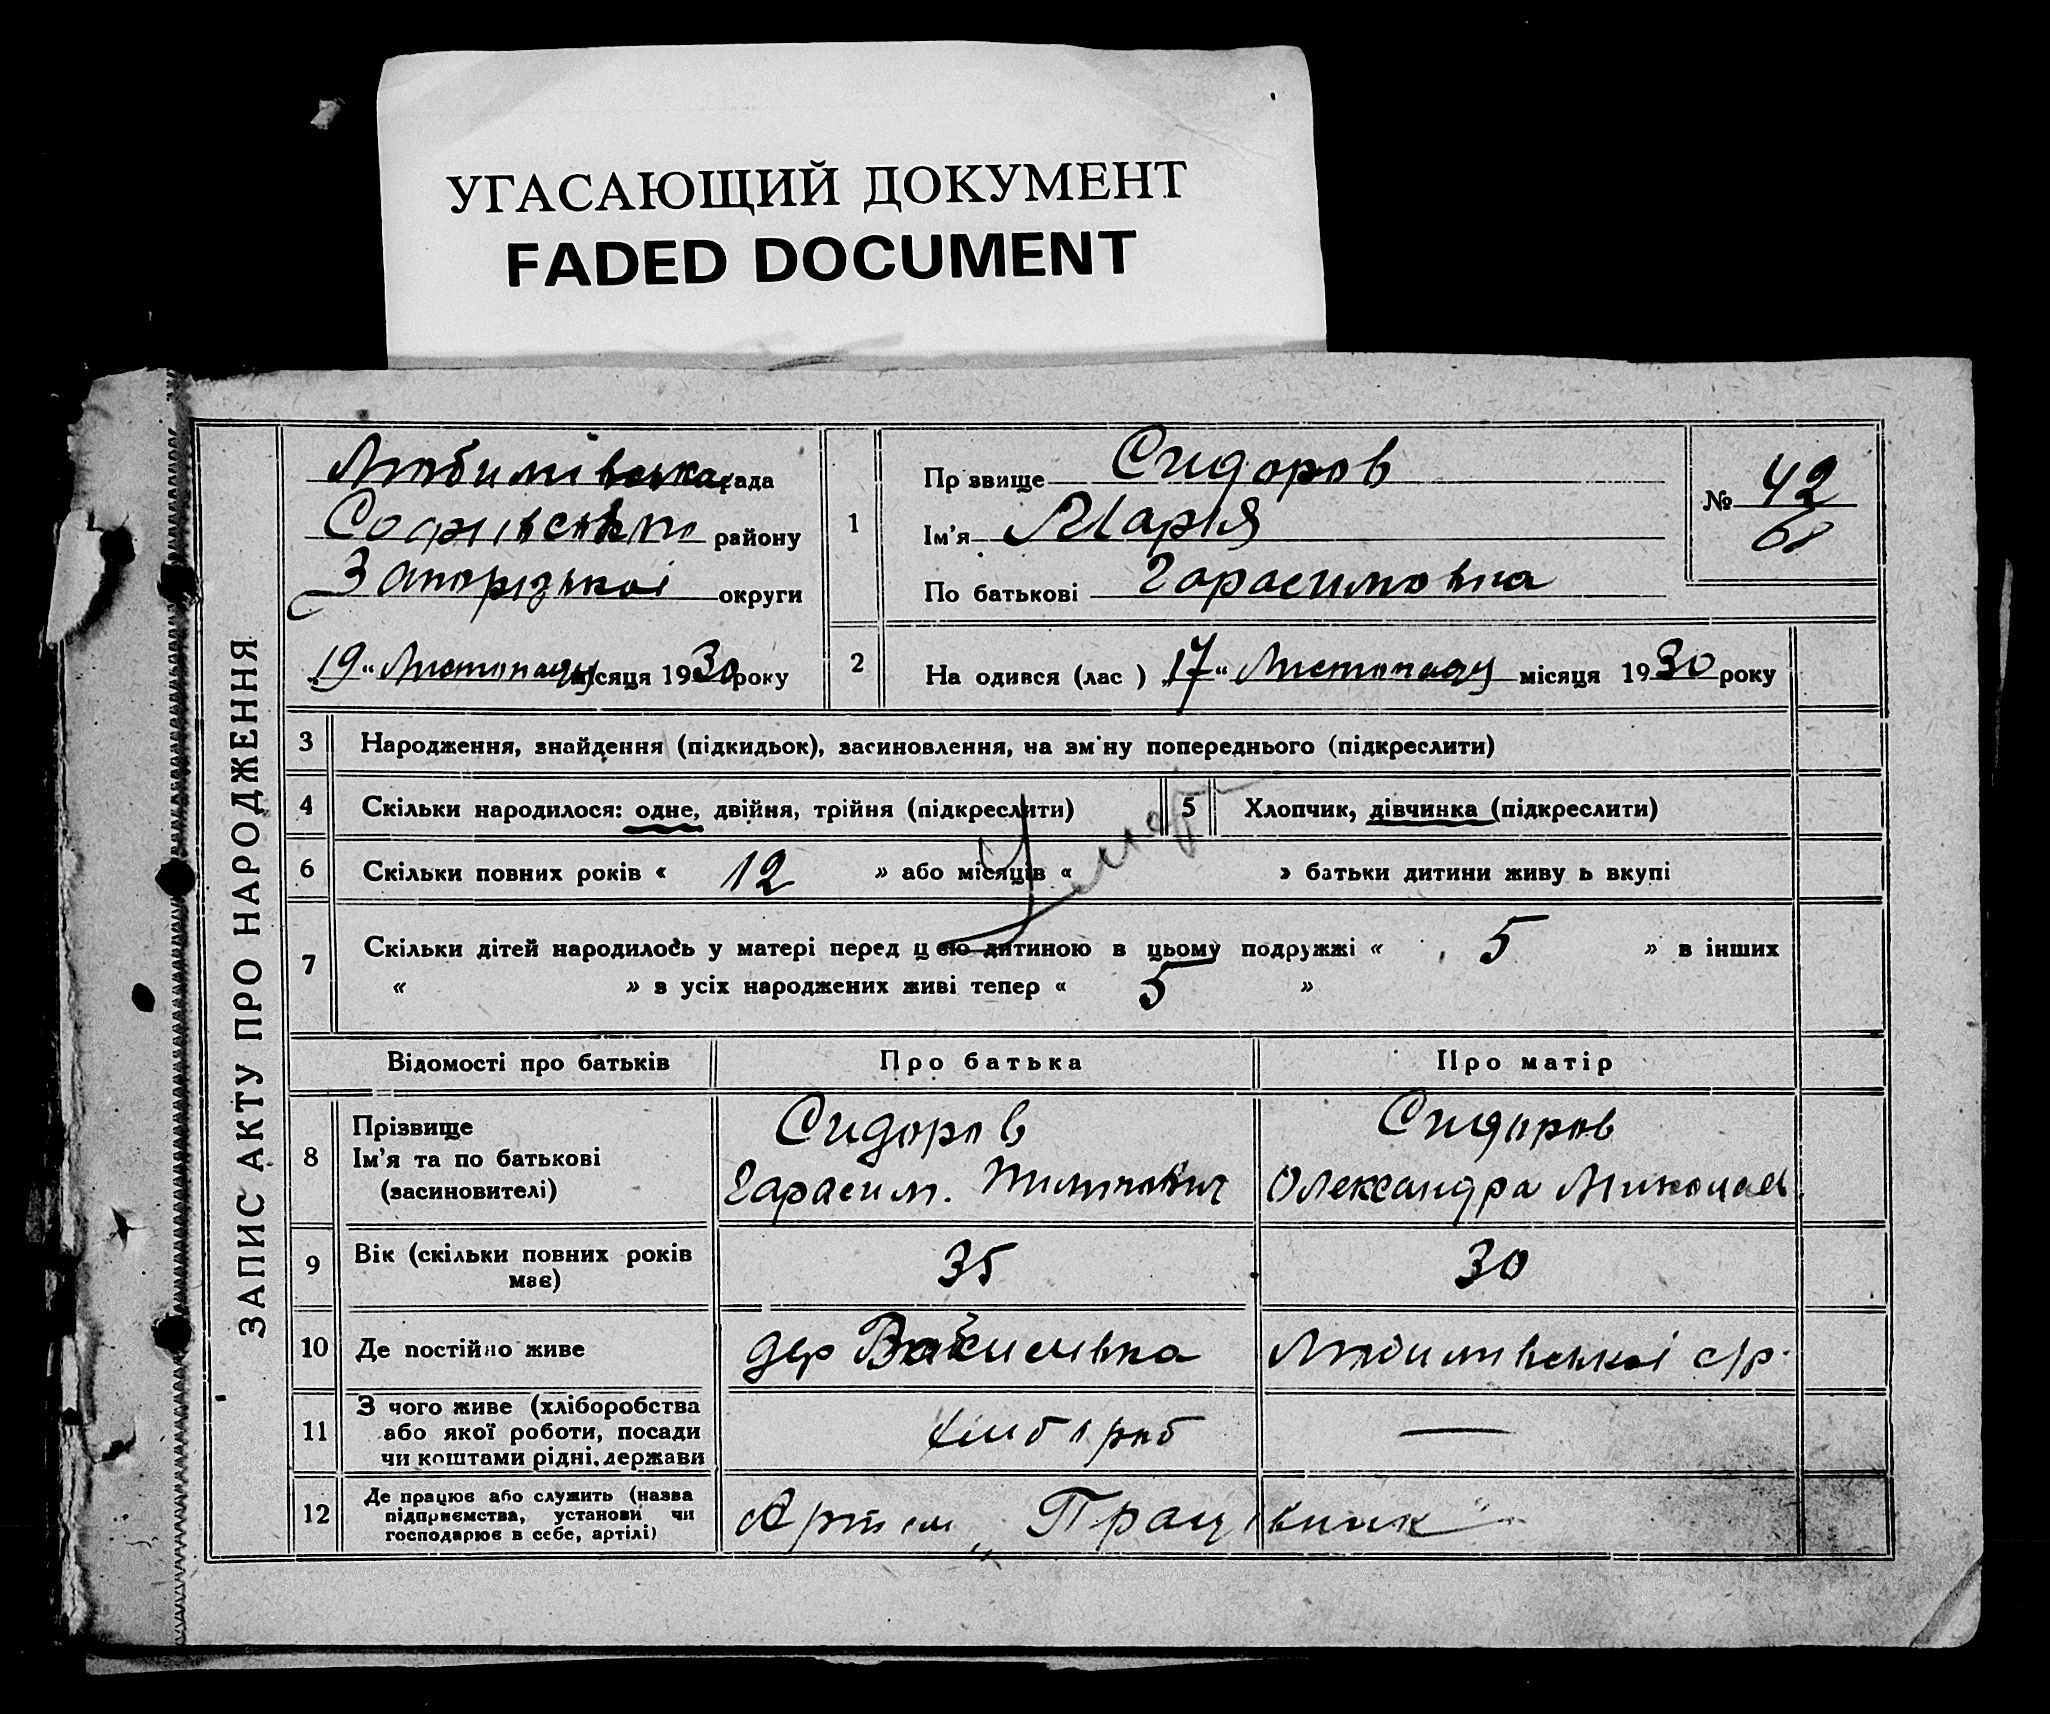 УГАСАЮЩИЙ ДОКУМЕНТ
FADED DOCUMENT
ЗАПИС АКТУ ПРО НАРОДЖЕННЯ
Любимівська рада
Софіївськ району
Запорізької округи
„19“ Листопаду місяця 1930 року
1
Пр звище Сидоров
Ім'я Марія
По батькові Гарасимовна
№ 42
68
2
На одився (лас ) „17“ Листопаду місяця 1930 року
3 Народження, знайдення (підкидьок), засиновлення, на зм ну попереднього (підкреслити)
4 Скільки народилося: одне, двійня, трійня (підкреслити)
5 Хлопчик, дівчинка (підкреслити)
6 Скільки повних років « 12 » або місяців « » батьки дитини живу ь вкупі
7 Скільки дітей народилось у матері перед ц ею дитиною в цьому подружжі « 5 » в інших
« » в усіх народжених живі тепер « 5 »
Відомості про батьків
Про батька
Про матір
8 Прізвище
Ім'я та по батькові
(засиновителі)
Сидоров
Гарасим.
Сидоров
Олександра Миколаєв
9 Вік (скільки повних років
має)
35
30
10 Де постійно живе
дер Василівка
Любимівської с/р.
11 З чого живе (хліборобства
або якої роботи, посади
чи коштами рідні, держави
хлібороб
—
12 Де працює або служить (назва
підприємства, установи чи
господарює в себе, артілі)
Артіль „Працівник“